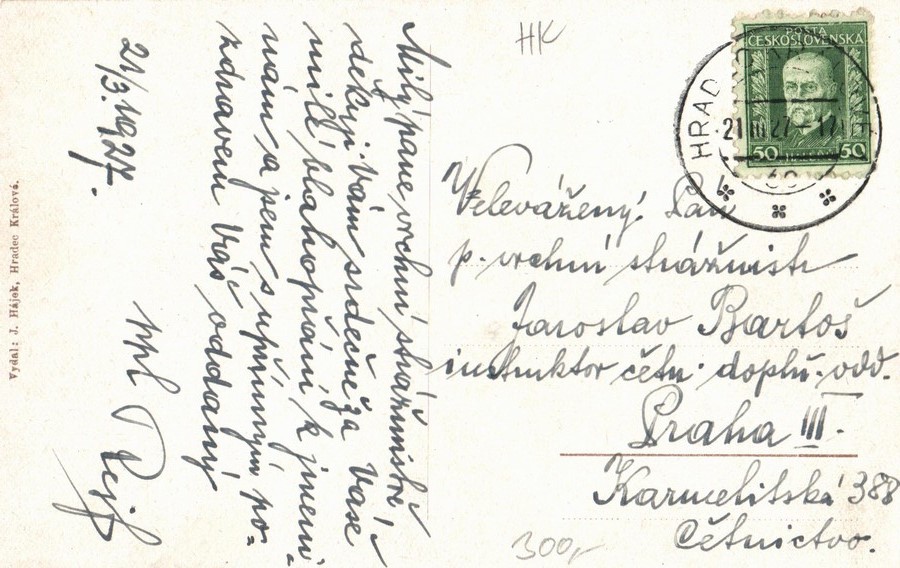 HK
POŠTA
ČESKOSLOVENSKÁ
50 50
HRADEC KRÁLOVÉ
21 III 27 - 17
Milý pane vrchní strážmistře,
děkuji Vám srdečně za Vaše
milé blahopřání k jmeni-
nám a jsem s upřímným po-
zdravem Váš oddaný
21/3.1927.
ppl
Velevážený Pan
p. vrchní strážmistr
Jaroslav Bartoš
instruktor četn. doplň. odd.
Praha III.
Karmelitská 388
Četnictvo.
300,-
Vydal: J. Hájek, Hradec Králové.